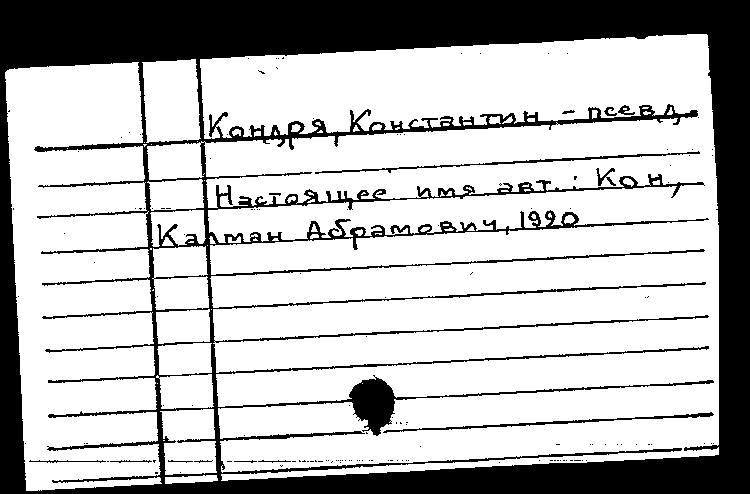 Кондря, Константин, - псевд.
Настоящее имя авт.: Кон,
Калман Абрамович, 1920